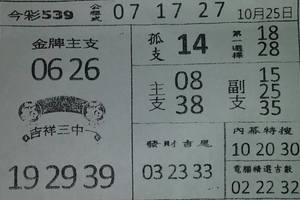 今彩539 公雙式 07 17 27 10月25日
金牌主支
06 26
吉祥三中
19 29 39
孤支 14
第一選擇 18 28
主支 08 38
副支 15 25 35
發財吉尾
03 23 33
內幕特搜
10 20 30
電腦精選吉數
02 22 32